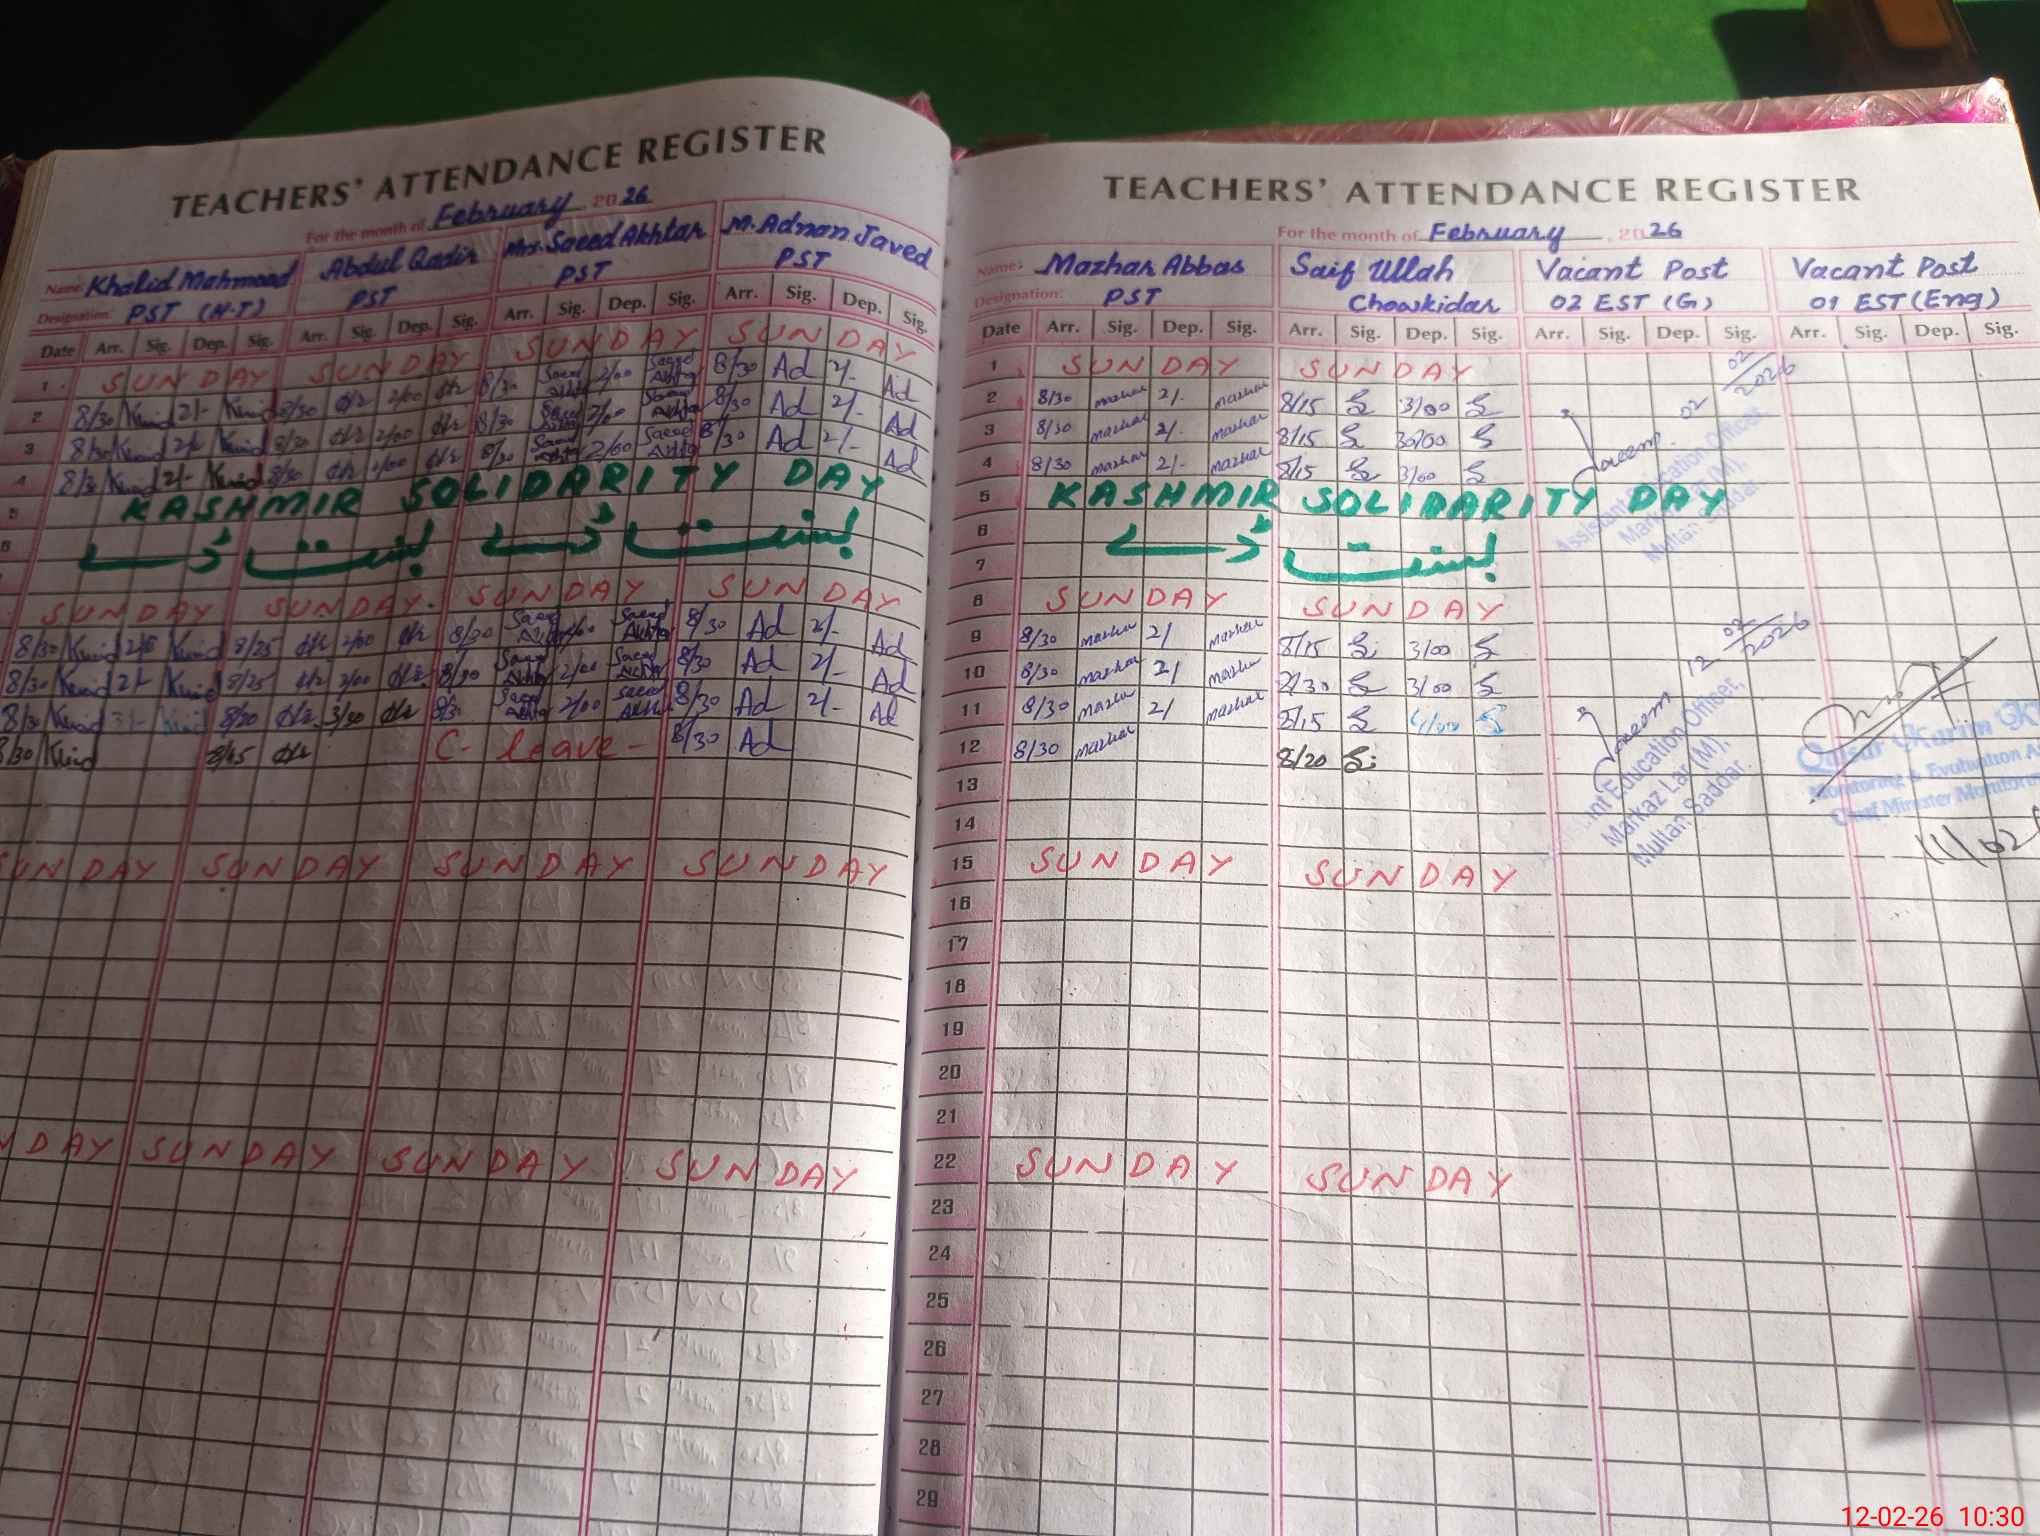 TEACHERS' ATTENDANCE REGISTER
For the month of February 2026
Name: Khalid Mahmood Abdul Qadir Mr. Saeed Akhtar M. Adnan Javed
Designation: PST (H-T) PST PST PST
Date Arr. Sig. Dep. Sig. Arr. Sig. Dep. Sig. Arr. Sig. Dep. Sig. Arr. Sig. Dep. Sig.
1 SUNDAY SUNDAY SUNDAY SUNDAY
2 8/30 2/- 8/30 2/00 8/30 Saeed Akhtar 2/00 Saeed Akhtar 8/30 Ad 2/- Ad
3 8/30 2/- 8/30 2/00 8/30 Saeed Akhtar 2/00 Saeed Akhtar 8/30 Ad 2/- Ad
4 8/30 2/- 8/30 2/00 8/30 Saeed Akhtar 2/00 Saeed Akhtar 8/30 Ad 2/- Ad
5 KASHMIR SOLIDARITY DAY
6 بسنت ڈے بسنت ڈے
SUNDAY SUNDAY SUNDAY SUNDAY
8/30 8/25 2/00 8/30 Saeed Akhtar 2/00 Saeed Akhtar 8/30 Ad 2/- Ad
8/30 2/- 8/25 2/00 8/30 Saeed Akhtar 2/00 Saeed Akhtar 8/30 Ad 2/- Ad
8/30 3/- 8/20 3/30 8/30 Saeed Akhtar 2/00 Saeed Akhtar 8/30 Ad 2/- Ad
8/30 C- leave - 8/30 Ad
SUNDAY SUNDAY SUNDAY SUNDAY
DAY SUNDAY SUNDAY SUNDAY
TEACHERS' ATTENDANCE REGISTER
For the month of February 2026
Name: Mazhar Abbas Saif Ullah Vacant Post Vacant Post
Designation: PST Chowkidar 02 EST (G) 01 EST (Eng)
Date Arr. Sig. Dep. Sig. Arr. Sig. Dep. Sig. Arr. Sig. Dep. Sig. Arr. Sig. Dep. Sig.
1 SUNDAY SUNDAY
2 8/30 mazhar 2/- mazhar 8/15 3/00
3 8/30 mazhar 2/- mazhar 8/15 30/00
4 8/30 mazhar 2/- mazhar 8/15 3/00
5 KASHMIR SOLIDARITY DAY
6 بسنت ڈے
7
8 SUNDAY SUNDAY
9 8/30 mazhar 2/ mazhar 8/15 3/00
10 8/30 mazhar 2/ mazhar 8/30 3/00
11 8/30 mazhar 2/ mazhar 8/15 4/00
12 8/30 mazhar 8/20
13
14
15 SUNDAY SUNDAY
16
17
18
19
20
21
22 SUNDAY SUNDAY
23
24
25
26
27
28
29
02 02/2026
Assistant Education Officer,
Multan Saddar
12 02/2026
Education Officer,
Markaz Lar (M),
Multan Saddar.
Qaisar Karim
Monitoring & Evaluation
Chief Minister Monitoring
11/02
12-02-26 10:30